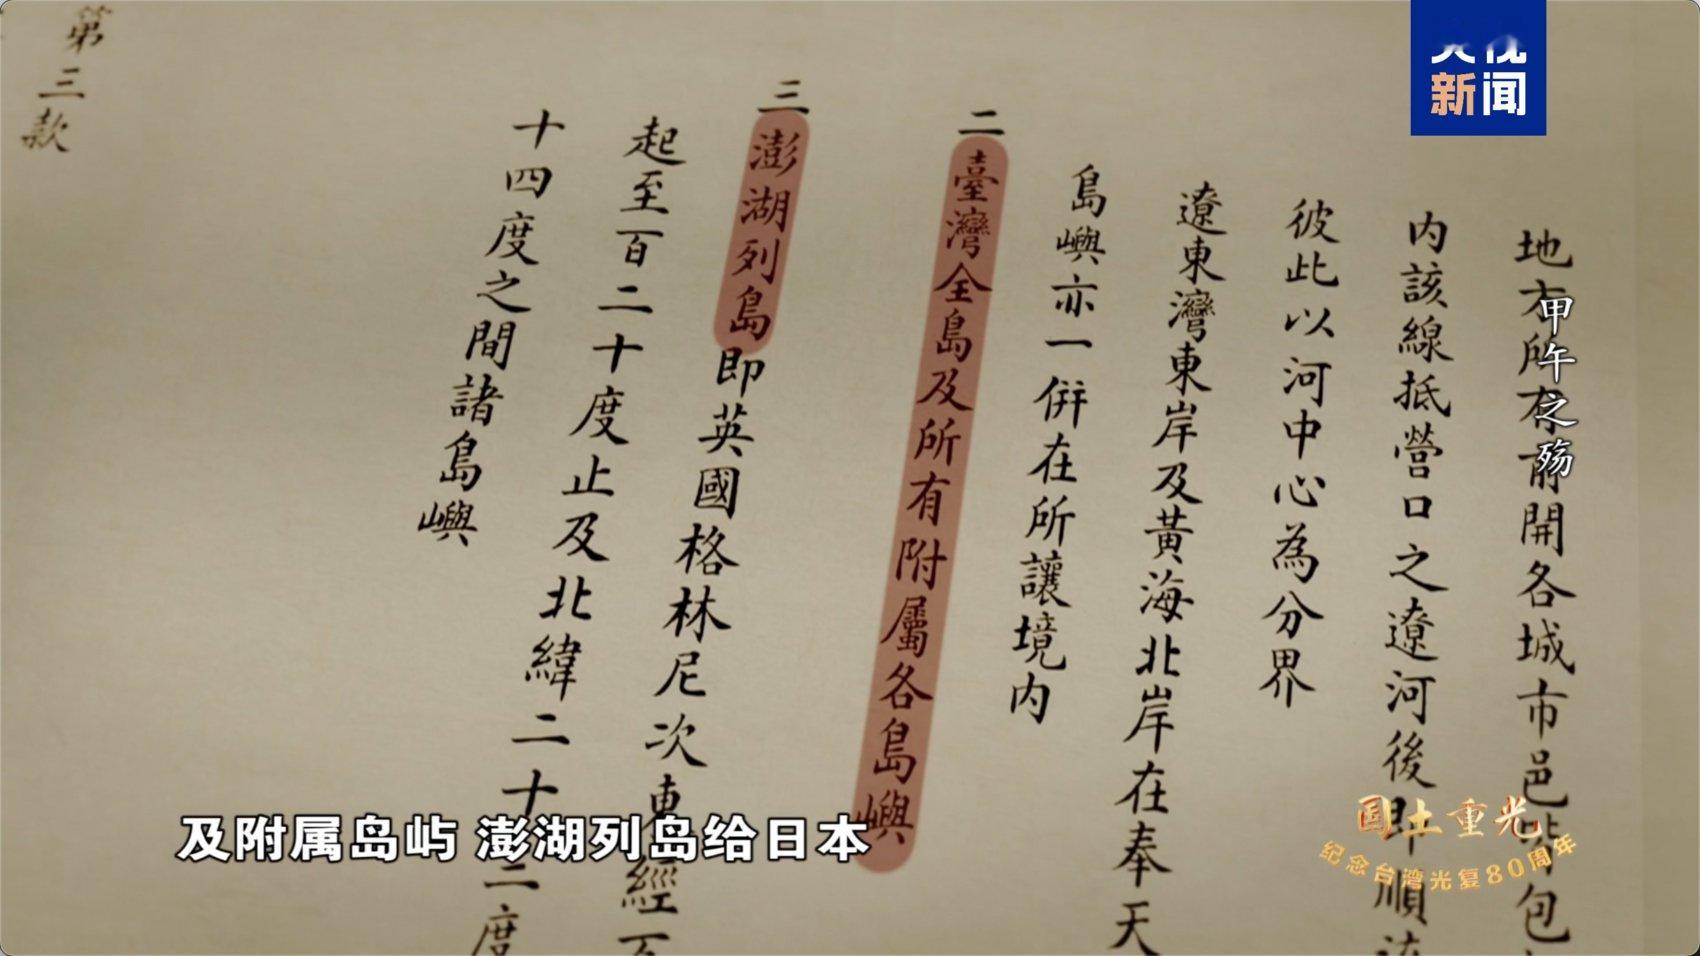 央视
新闻
地方所有前開各城市邑皆包
内該線抵營口之遼河後即順流
彼此以河中心為分界
遼東灣東岸及黃海北岸在奉天
島嶼亦一併在所讓境内
二臺灣全島及所有附屬各島嶼
三澎湖列島即英國格林尼次東經百
起至百二十度止及北緯二十三度
十四度之間諸島嶼
第三款
甲午之殇
及附属岛屿 澎湖列岛给日本
国土重光
纪念台湾光复80周年